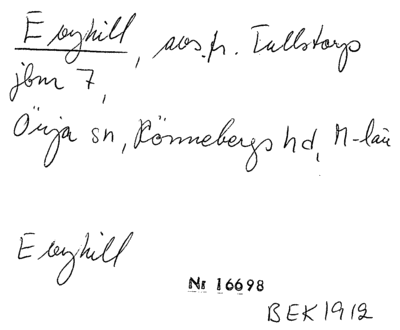 Evyhill, avs. fr. Tullstorp
jbm 7,
Örja sn, Rönnebergs hd, M-län
Evyhill
Nr 16698
BEK 1912